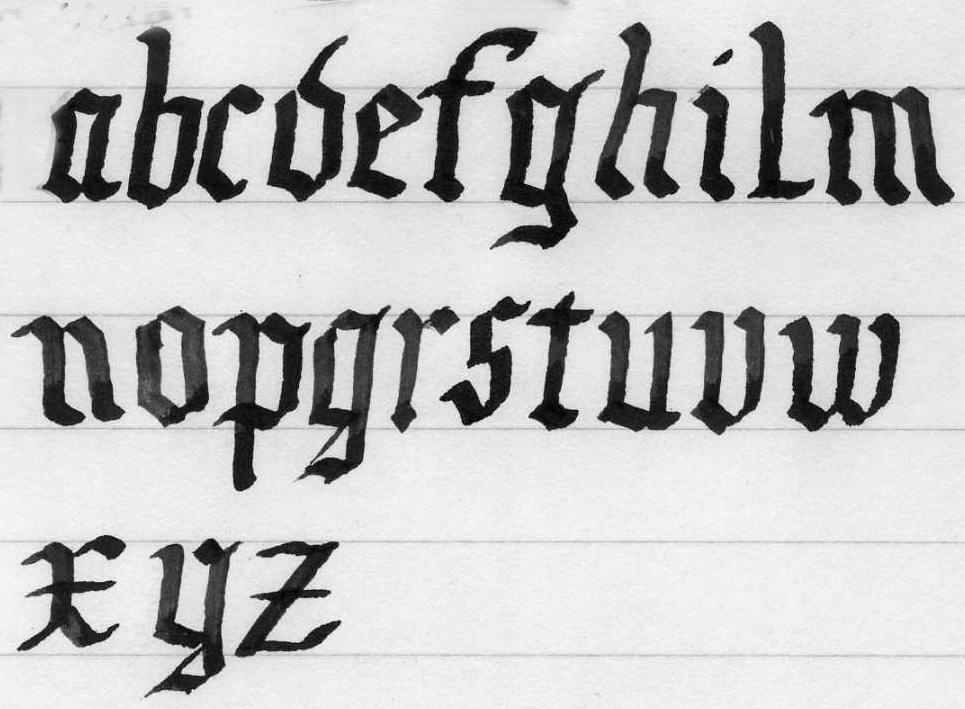 abcdefghilm
nopqrstuvw
xyz